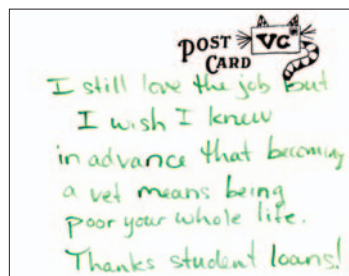 POST CARD
VC
I still love the job but
I wish I knew
in advance that becoming
a vet means being
poor your whole life.
Thanks student loans!